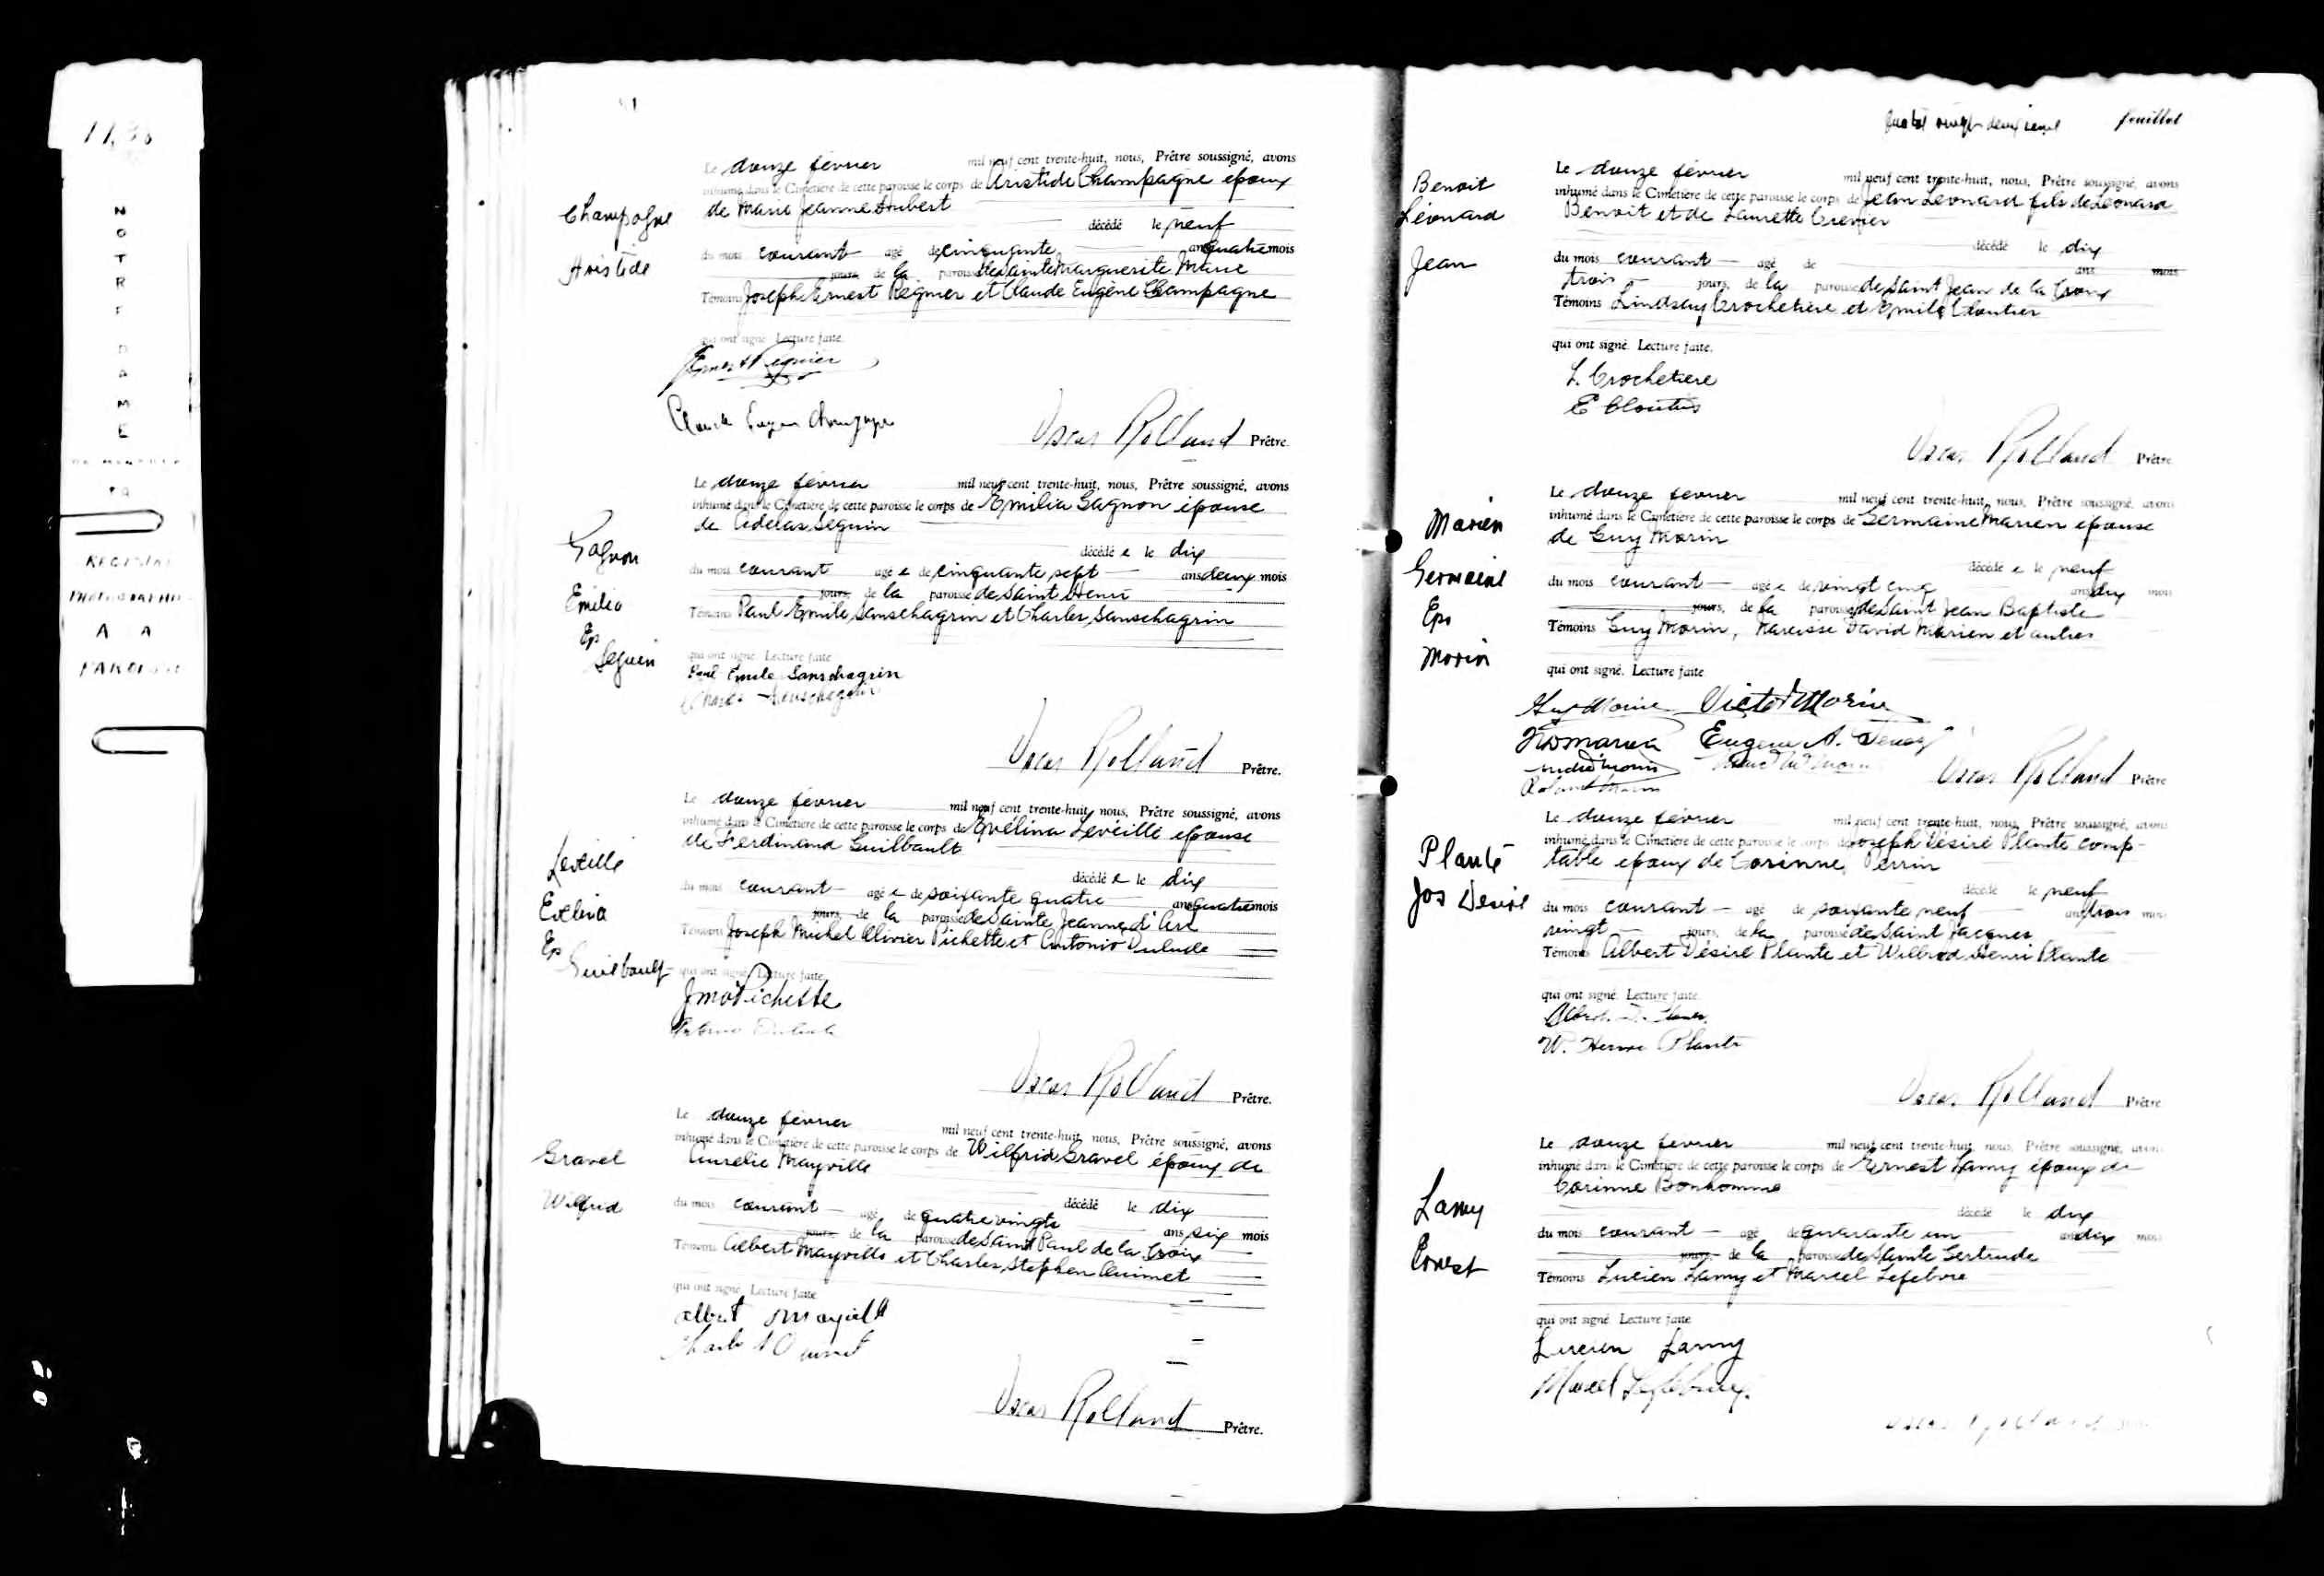 NOTRE DAME
REGISTRE
PHOTOGRAPHIE
A LA
PAROISSE
Le douze février mil neuf cent trente-huit, nous, Prêtre soussigné, avons
inhumé dans le Cimetière de cette paroisse le corps de Aristide Champagne epoux
de Marie Jeanne Aubert
décédé le neuf
du mois courant agé de cinquante ans quatre mois
jours, de la paroisse de Sainte Marguerite Marie
Témoins Joseph Ernest Régnier et Claude Eugène Champagne
qui ont signé. Lecture faite.
Champagne
Aristide
Ernest Regnier
Claude Eugene Champagne
Oscar Rolland Prêtre.
Le douze février mil neuf cent trente-huit, nous, Prêtre soussigné, avons
inhumé dans le Cimetière de cette paroisse le corps de Emilia Gagnon épouse
de Adelas Séguin
décédée le dix
du mois courant agée de cinquante sept ans deux mois
jours, de la paroisse de Saint Henri
Témoins Paul Emile Sanschagrin et Charles Sanschagrin
qui ont signé. Lecture faite
Gagnon
Emilia
Ep
Seguin
Paul Emile Sanschagrin
Charles Sanschagrin
Oscar Rolland Prêtre.
Le douze février mil neuf cent trente-huit, nous, Prêtre soussigné, avons
inhumé dans le Cimetière de cette paroisse le corps de Evélina Léveillé epouse
de Ferdinand Guilbault
décédée le dix
du mois courant agée de soixante quatre ans quatre mois
jours, de la paroisse de Sainte Jeanne d'Arc
Témoins Joseph Michel Olivier Pichette et Antonio Dulude
qui ont signé. Lecture faite.
Leveillé
Evelina
Ep
Guilbault
J M O Pichette
Oscar Rolland Prêtre.
Le douze février mil neuf cent trente-huit, nous, Prêtre soussigné, avons
inhumé dans le Cimetière de cette paroisse le corps de Wilfrid Gravel époux de
Aurelie Mayville
décédé le dix
du mois courant agé de quatre vingts ans six mois
jours, de la paroisse de Saint Paul de la Croix
Témoins Albert Mayville et Charles Stephen Ouimet
qui ont signé. Lecture faite
Gravel
Wilfrid
Albert Mayville
Oscar Rolland Prêtre.
feuillet
Le douze février mil neuf cent trente-huit, nous, Prêtre soussigné, avons
inhumé dans le Cimetière de cette paroisse le corps de Jean Léonard fils de Léonard
Benoit et de Laurette Grenier
décédé le dix
du mois courant agé de ans mois
trois jours, de la paroisse de Saint Jean de la Croix
Témoins Lindsay Crochetière et Emile Cloutier
qui ont signé. Lecture faite.
Benoit
Léonard
Jean
L. Crochetiere
E Cloutier
Oscar Rolland Prêtre
Le douze février mil neuf cent trente-huit, nous, Prêtre soussigné, avons
inhumé dans le Cimetière de cette paroisse le corps de Germaine Marien epouse
de Guy Morin
décédée le neuf
du mois courant agée de vingt cinq ans dix mois
jours, de la paroisse de Saint Jean Baptiste
Témoins Guy Morin, Narcisse David Marien et autres
qui ont signé. Lecture faite
Marien
Germaine
Eps
Morin
Guy Morin Victor Morin
Oscar Rolland Prêtre
Le douze février mil neuf cent trente-huit, nous, Prêtre soussigné, avons
inhumé dans le Cimetière de cette paroisse le corps de Joseph Désiré Plante comp-
table epoux de Corinne Perrin
décédé le neuf
du mois courant agé de soixante neuf ans trois mois
vingt jours, de la paroisse de Saint Jacques
Témoins Albert Désiré Plante et Wilbrod Henri Plante
qui ont signé. Lecture faite
Plante
Jos Desire
W. Henri Plante
Oscar Rolland Prêtre
Le douze février mil neuf cent trente-huit, nous, Prêtre soussigné, avons
inhumé dans le Cimetière de cette paroisse le corps de Ernest Lamy époux de
Corinne Bonhomme
décédé le dix
du mois courant agé de quarante un ans dix mois
jours, de la paroisse de Sainte Gertrude
Témoins Lucien Lamy et Marcel Lefebvre
qui ont signé. Lecture faite
Lamy
Ernest
Lucien Lamy
Marcel Lefebvre
Oscar Rolland